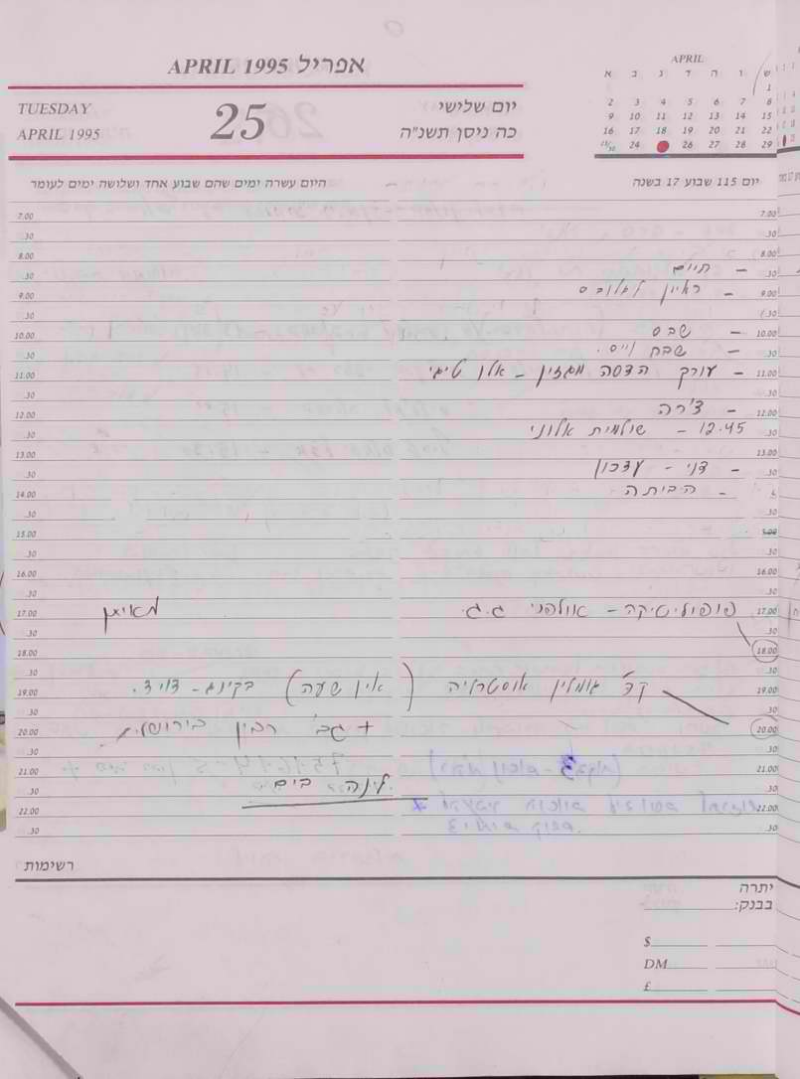 אפריל APRIL 1995
TUESDAY
APRIL 1995
25
יום שלישי
כה ניסן תשנ"ה
APRIL
א ב ג ד ה ו ש
1
2 3 4 5 6 7 8
9 10 11 12 13 14 15
16 17 18 19 20 21 22
23/30 24 26 27 28 29
יום 115 שבוע 17 בשנה
היום עשרה ימים שהם שבוע אחד ושלושה ימים לעומר
7.00
.30
8.00
.30 – תיים
9.00 – ראיון
.30
10.00 – שבס
.30 – שבח וייס.
11.00 – עורך הדסה מגזין – אלן טיגי
.30
12.00 – צ'רה
.30 12.45 – שולמית אלוני
13.00
.30 – דני – עדכון
14.00 – הביתה
.30
15.00
.30
16.00
.30
17.00 פופוליטיקה – אולפני ג.ג. מאיתן
.30
18.00
.30
19.00 קד גומלין אוסטרליה (אין שעה) בקינג-דויד.
.30
20.00 + גב' רבין בירושלים
.30
21.00
.30 לינה: בים
22.00
.30
רשימות
יתרה
בבנק:
$
DM
£